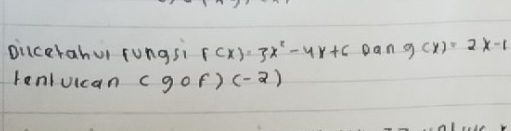 Diketahui fungsi f(x) = 3x² - 4x + 6 dan g(x) = 2x - 1
tentukan (gof)(-2)